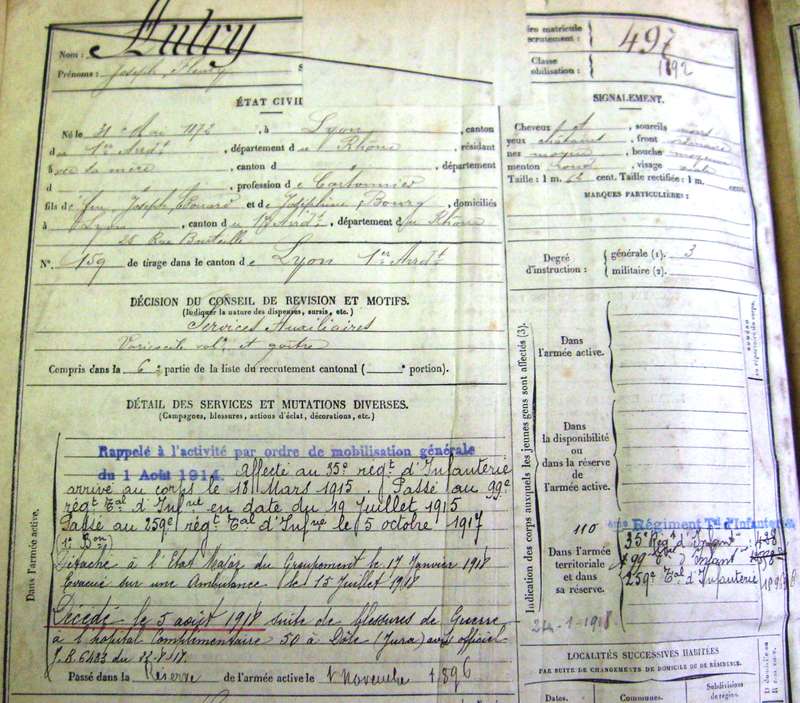 Nom: Autry
Prénoms: Joseph, Fleury
ÉTAT CIVIL
Né le 31 Mai 1872, à Lyon, canton
du 1er Arrdt, département du Rhône, résidant
à avec sa mère, canton d, département
d, profession de Cartonnier
fils de feu Joseph, et de Joséphine Bourg, domiciliés
à Lyon, canton du 1er Arrdt, département du Rhône
26 Rue
N° 159 de tirage dans le canton de Lyon 1er Arrdt
DÉCISION DU CONSEIL DE REVISION ET MOTIFS.
(Indiquer la nature des dispenses, sursis, etc.)
Services Auxiliaires
Varicocèle vol. et goître
Compris dans la 6e partie de la liste du recrutement cantonal ( portion).
DÉTAIL DES SERVICES ET MUTATIONS DIVERSES.
(Campagnes, blessures, actions d'éclat, décorations, etc.)
Dans l'armée active.
Rappelé à l'activité par ordre de mobilisation générale
du 1 Août 1914. Affecté au 35e régt d'Infanterie
arrivé au corps le 18 Mars 1915. Passé au 99e
régt Tal d'Infrie en date du 19 Juillet 1915
Passé au 259e régt Tal d'Infrie le 5 octobre 1917
(1er Bon)
Détaché à l'Etat Major du Groupement le 17 Janvier 1918
Evacué sur une Ambulance le 15 Juillet 1918
Décédé le 5 août 1918 suite de blessures de Guerre
à l'hôpital Complémentaire 50 à Dôle (Jura) avis officiel
J.B. 6433 du
Passé dans la Réserve de l'armée active le 1 Novembre 1896
éro matricule
recrutement: 497
Classe
mobilisation: 1892
SIGNALEMENT.
Cheveux et, sourcils noirs
yeux châtains, front ordinaire
nez moyen, bouche moyenne
menton rond, visage ovale
Taille: 1 m. cent. Taille rectifiée: 1 m. cent.
MARQUES PARTICULIÈRES:
Degré
d'instruction:
générale (1). 3
militaire (2).
Indication des corps auxquels les jeunes gens sont affectés (3).
NUMÉRO
au répertoire du corps.
Dans
l'armée active.
Dans
la disponibilité
ou dans la réserve
de l'armée active.
110
Régiment Tal d'Infanterie
Dans l'armée
territoriale
et dans
sa réserve.
35e Régt d'Infant
99 d'Infant
259e Tal d'Infanterie
24-1-1918.
LOCALITÉS SUCCESSIVES HABITÉES
PAR SUITE DE CHANGEMENTS DE DOMICILE OU DE RÉSIDENCE.
Dates.
Communes.
Subdivisions
de région.
D domicile